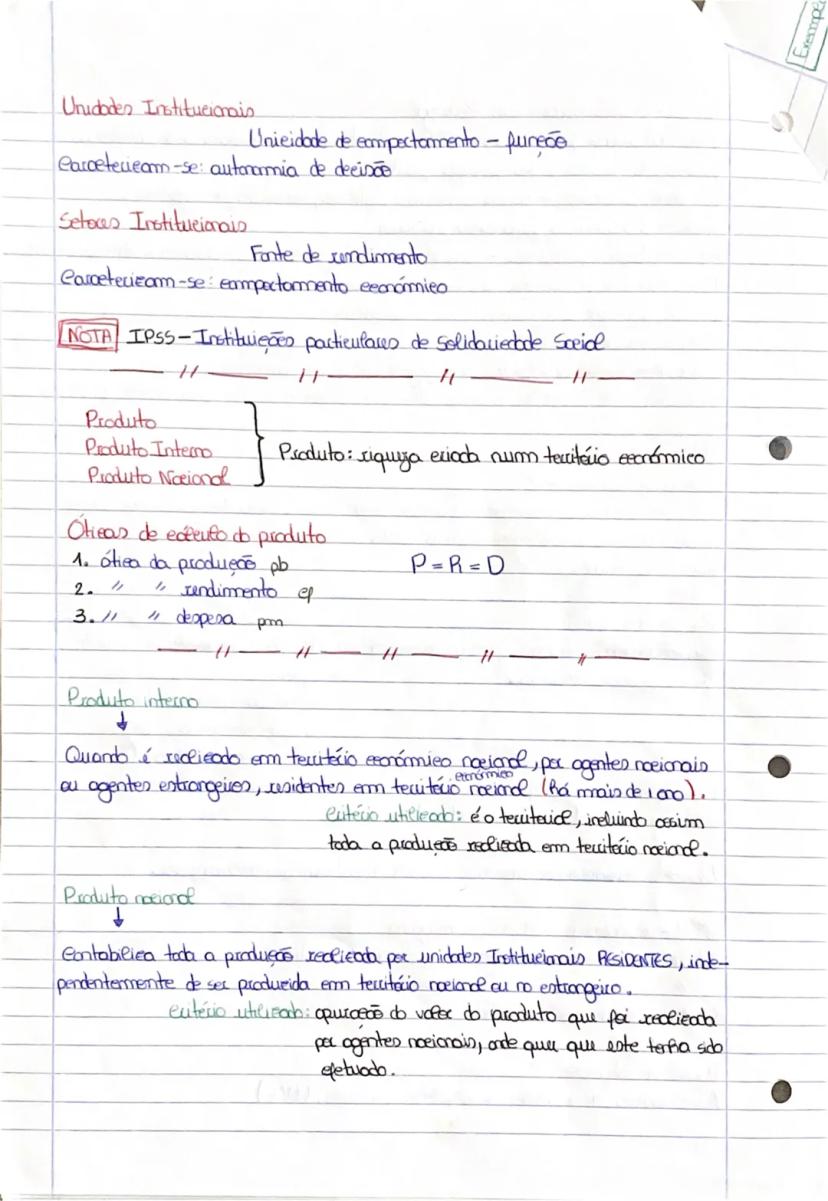 Exemplo
Unidades Institucionais
Unicidade de comportamento - função
Caracterizam-se: autonomia de decisão
Setores Institucionais
Fonte de rendimento
Caracterizam-se: comportamento económico
NOTA IPSS-Instituições particulares de Solidariedade Social
Produto
Produto Interno
Produto Nacional
Produto: riqueza criada num território económico
Óticas de cálculo do produto
1. ótica da produção pb
P = R = D
2. " " rendimento cf
3. " " despesa pm
Produto interno
↓
Quando é realizado em território económico nacional, por agentes nacionais
ou agentes estrangeiros, residentes em território económico nacional (há mais de 1 ano).
critério utilizado: é o territorial, incluindo assim
toda a produção realizada em território nacional.
Produto nacional
↓
Contabiliza toda a produção realizada por unidades Institucionais RESIDENTES, inde-
pendentemente de ser produzida em território nacional ou no estrangeiro.
critério utilizado: apuração do valor do produto que foi realizada
por agentes nacionais, onde quer que este tenha sido
efetuado.